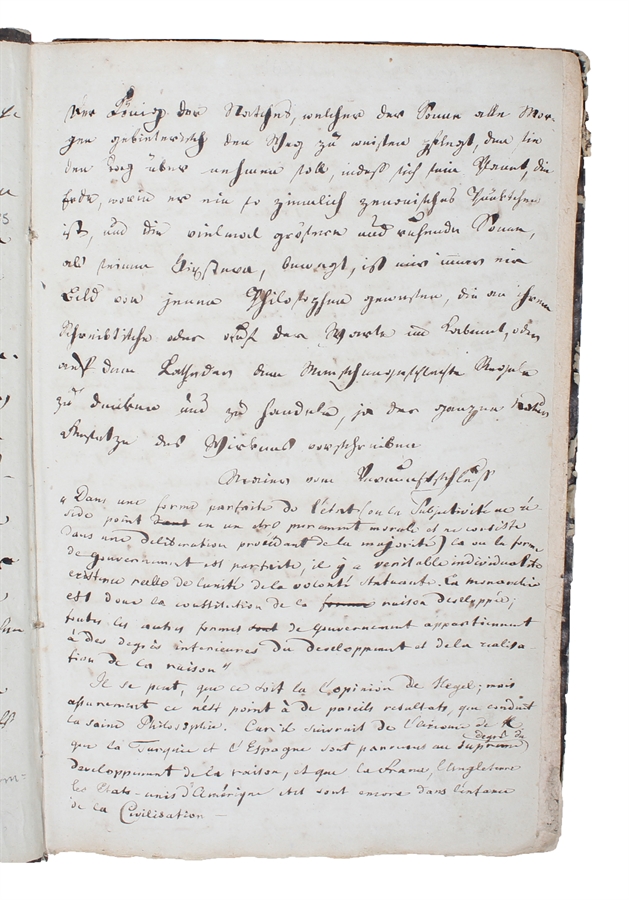 Der König der Natches, welcher der Sonne alle Mor-
gen gebieterisch den Weg zu weisen pflegt, den sie
den Tag über nehmen soll, indeß sich sein Planet, die
Erde, worin er ein so zimmlich zenonisches Pünktchen
ist, und die vielmal größere und ruhende Sonne,
als seinem, bewegt, ist mir immer ein
Bild von jenen Philosophen gewesen, die an ihrem
Schreibtische oder auf der Warte im Kabinet, oder
auf dem Katheder dem Menschengeschlechte Regeln
zu denken und zu handeln, ja der ganzen Natur
Gesetze des Wirkens vorschreiben
vom Vernunftschluß
"Dans une forme parfaite de l'état (ou la Subjetivité ne ré-
side point dans en un etre purement morale et ne consiste
dans une deliberation procedant de la majorité) la ou la forme
de gouvernement est parfaite, il y a veritable individualité
existence reelle de l'unité de la volonté statuante. La monarchie
est donc la constitution de la forme raison developpée;
toutes les autres formes sont de Gouvernement appartiennent
à des degrés interieures du developpement et de la realisa-
tion de la raison"
Il se peut, que ce soit la l'opinion de Hegel; mais
assurement ce n'est point à de pareils resultats, que conduit
la saine Philosophie. Car il suivrait de l'axiome de H.
degré du
que la Turquie et l'Espagne sont parvenus au Supreme
developpement de la raison, et que la France, l'Angleterre
les Etats-unis d'Amérique sont encore dans l'enfance
de la Civilisation —